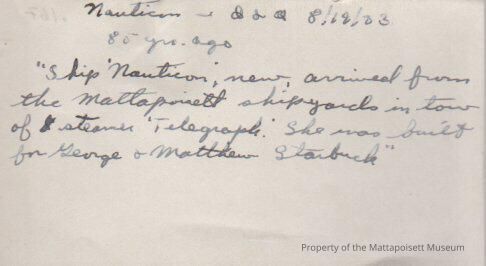 Nauticon - I & M 8/19/33
85 yrs. ago
"Ship 'Nauticon', new, arrived from
the Mattapoisett shipyards in tow
of steamer 'Telegraph'. She was built
for George & Matthew Starbuck"
Property of the Mattapoisett Museum